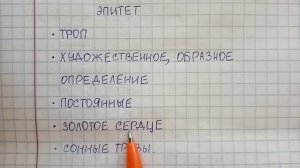 ЭПИТЕТ
• ТРОП
• ХУДОЖЕСТВЕННОЕ, ОБРАЗНОЕ
ОПРЕДЕЛЕНИЕ
• ПОСТОЯННЫЕ
• ЗОЛОТОЕ СЕРДЦЕ
• СОННЫЕ ТРАВЫ.